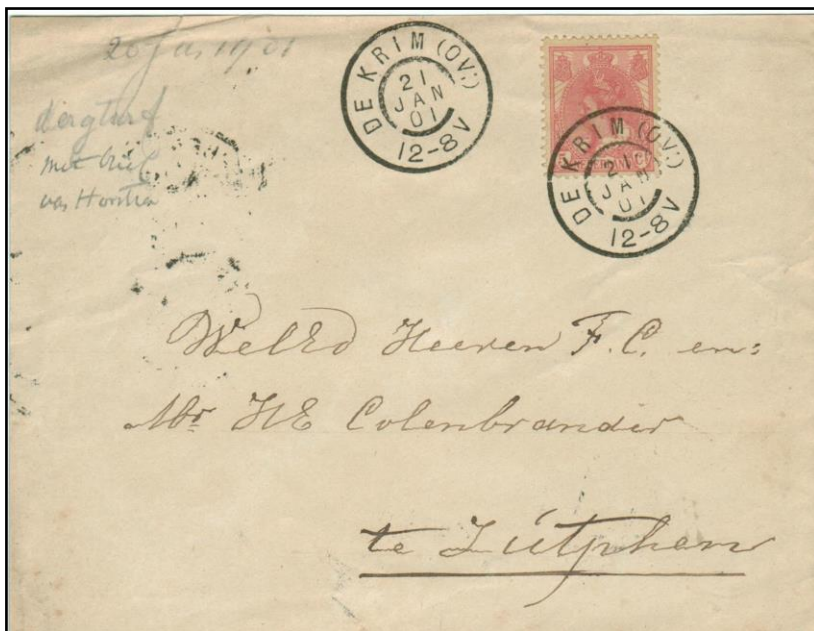 20 Jan 1901
met brief
DE KRIM (OV:)
21
JAN
01
12-8V
DE KRIM (OV:)
21
JAN
01
12-8V
WelEd Heeren F. C. en:
Mr H E Colenbrander
te Zutphen